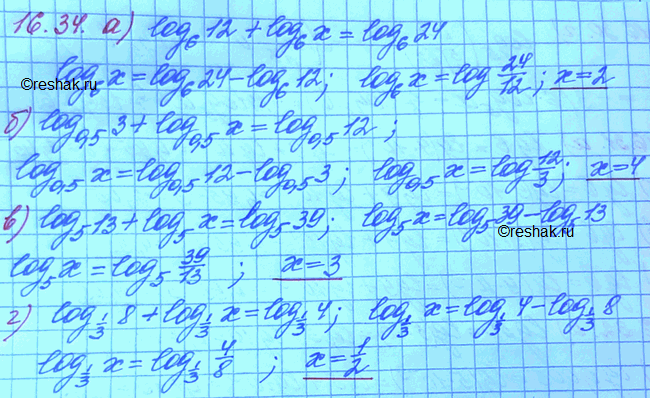 16.34. а) log₆12 + log₆x = log₆24
©reshak.ru
log₆x = log₆24 - log₆12; log₆x = log 24/12; x=2
б) log₀,₅3 + log₀,₅x = log₀,₅12;
log₀,₅x = log₀,₅12 - log₀,₅3; log₀,₅x = log 12/3; x=4
в) log₅13 + log₅x = log₅39; log₅x = log₅39 - log₅13
©reshak.ru
log₅x = log₅ 39/13; x=3
г) log₁/₃ 8 + log₁/₃ x = log₁/₃ 4; log₁/₃ x = log₁/₃ 4 - log₁/₃ 8
log₁/₃ x = log₁/₃ 4/8; x = 1/2